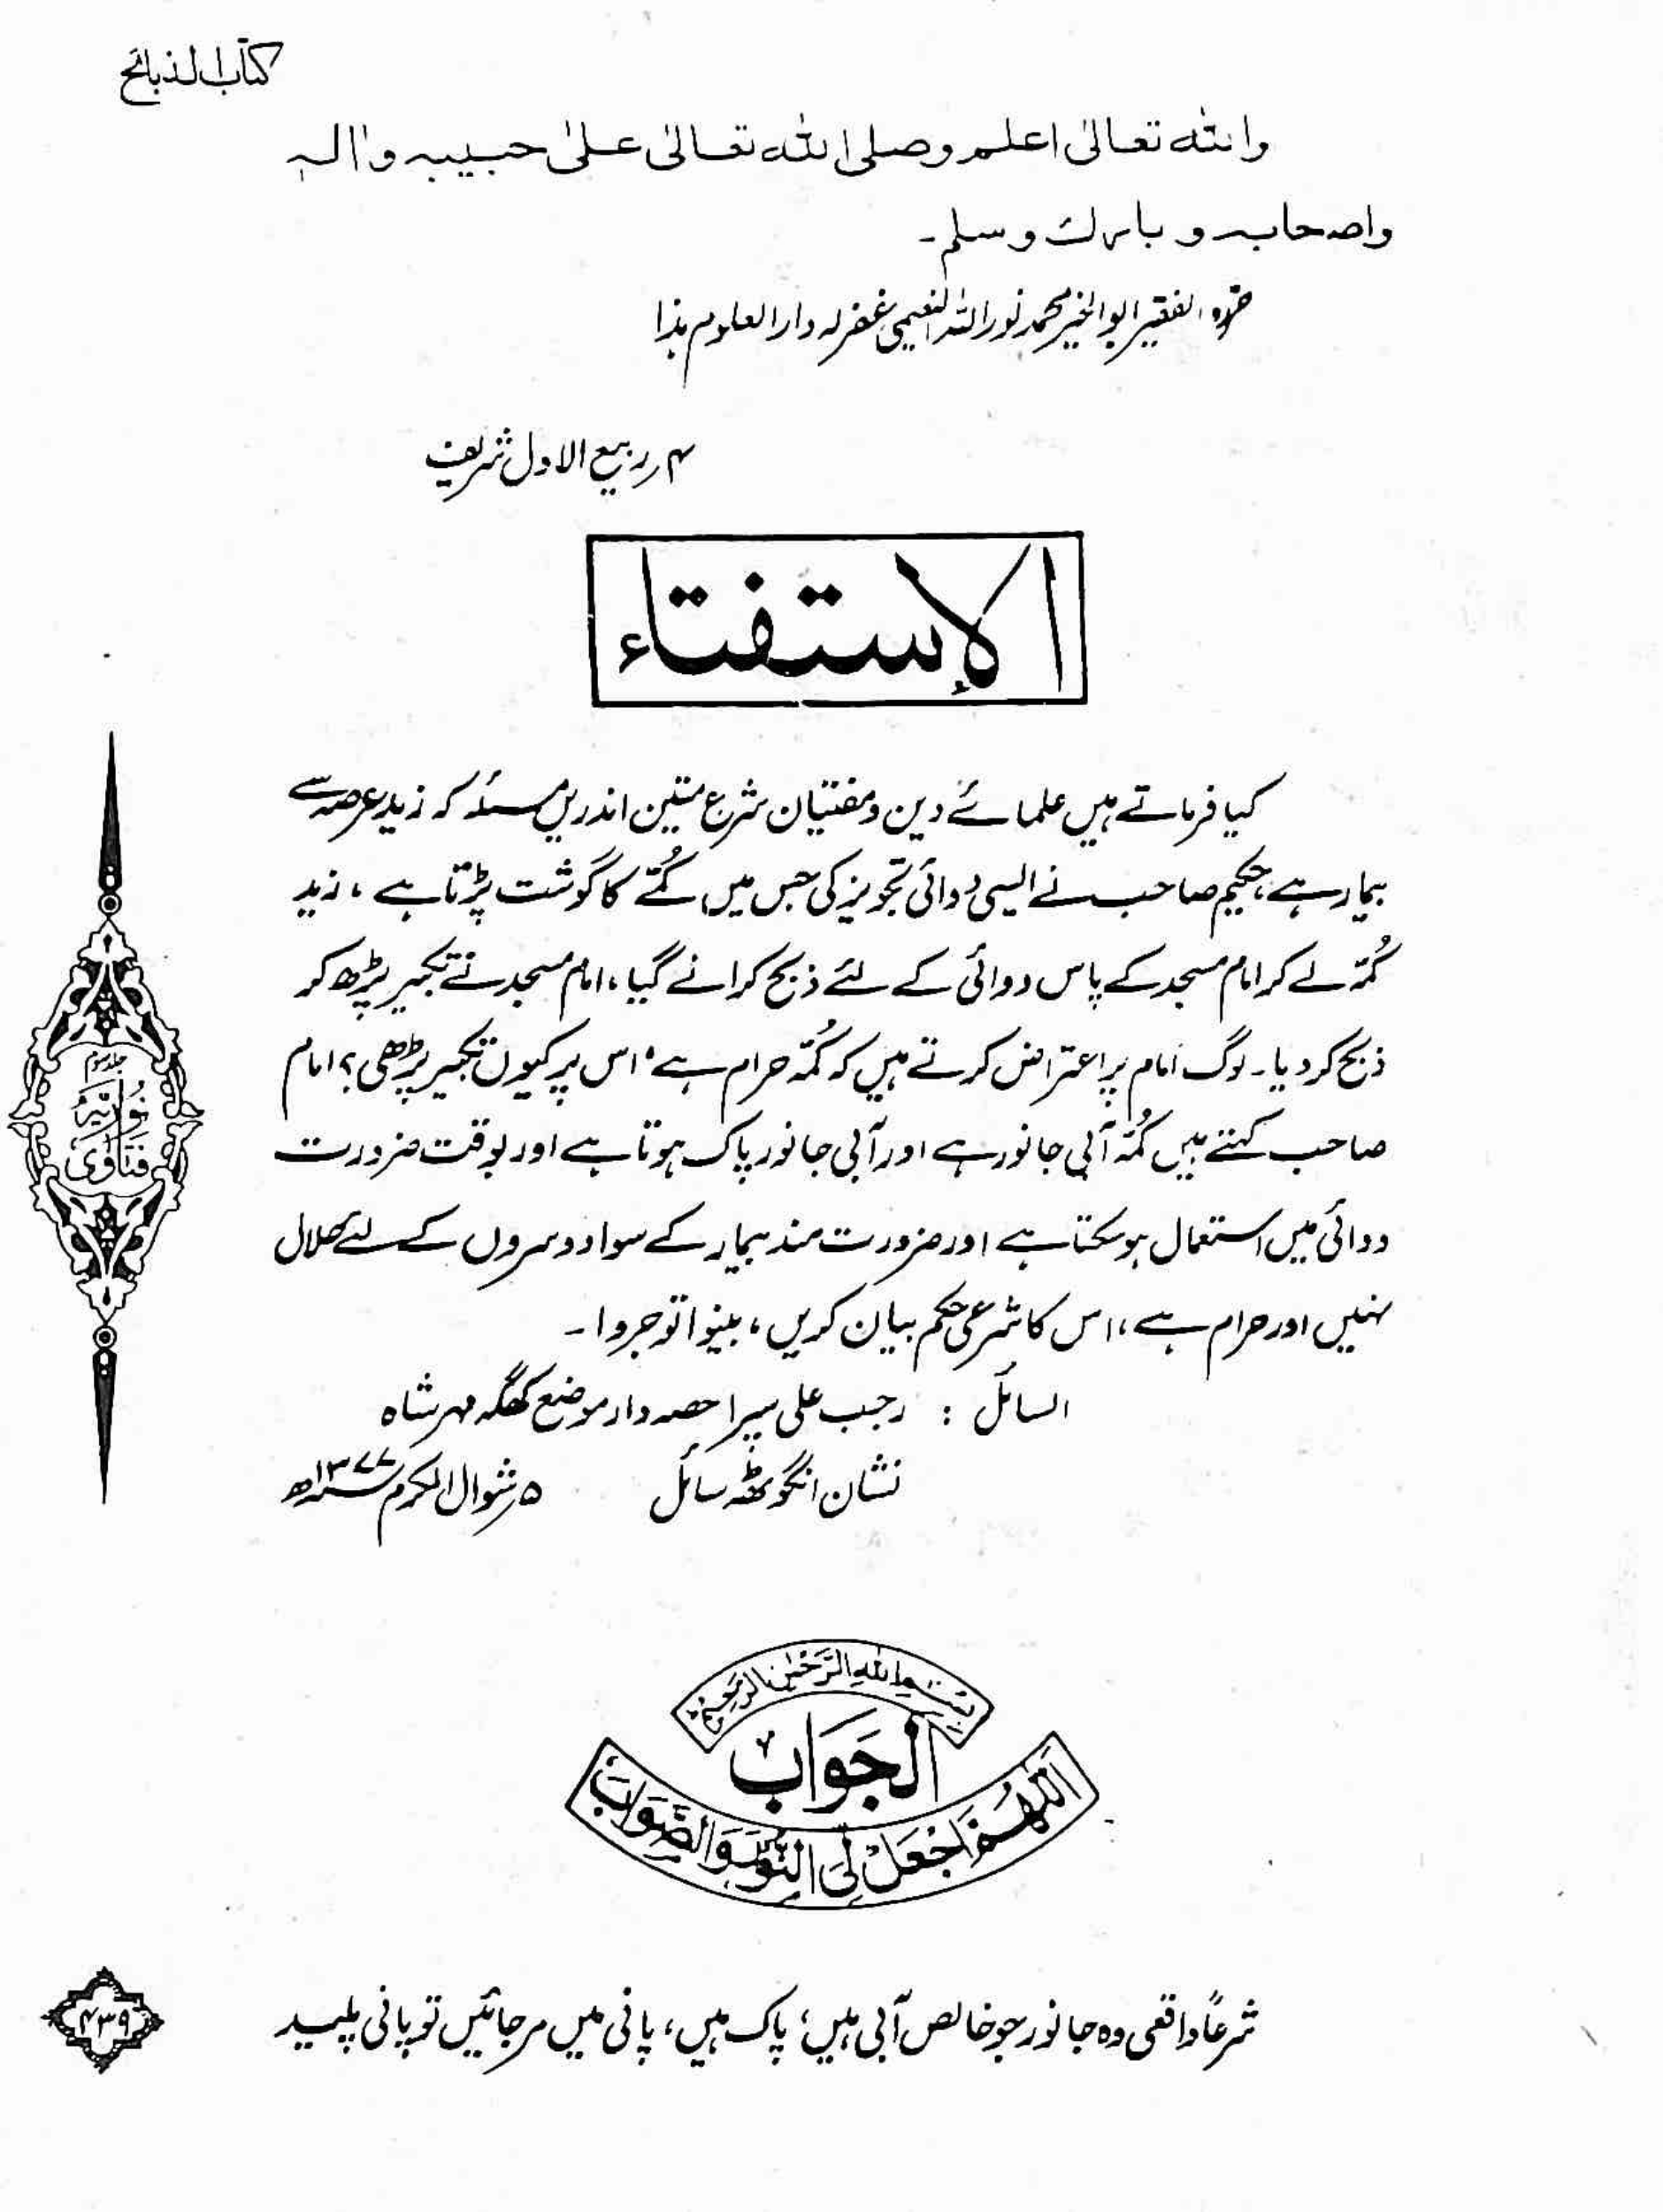 کتاب الذبائح
واللہ تعالیٰ اعلم وصلی اللہ تعالیٰ علیٰ حبیبہ واٰلہٖ
واصحابہ و بارك وسلم۔
حررہ الفقیر ابوالخیر محمد نوراللہ النعیمی غفرلہ دارالعلوم ہٰذا
۴ ربیع الاول شریف
الاِستفتاء
کیا فرماتے ہیں علمائے دین ومفتیان شرع متین اندریں مسئلہ کہ زید عرصہ سے
بیمار ہے، حکیم صاحب نے ایسی دوائی تجویز کی جس میں کُمّے کا گوشت پڑتا ہے، زید
کُمّہ لے کر امام مسجد کے پاس دوائی کے لئے ذبح کرانے گیا، امام مسجد نے تکبیر پڑھ کر
ذبح کر دیا۔ لوگ امام پر اعتراض کرتے ہیں کہ کُمّہ حرام ہے، اس پر کیوں تکبیر پڑھی؟ امام
صاحب کہتے ہیں کُمّہ آبی جانور ہے اور آبی جانور پاک ہوتا ہے اور بوقت ضرورت
دوائی میں استعمال ہو سکتا ہے اور ضرورت مند بیمار کے سوا دوسروں کے لئے حلال
نہیں اور حرام ہے، اس کا شرعی حکم بیان کریں، بینوا توجروا۔
السائل : رجب علی سپرا حصہ دار موضع کھگہ مہر شاہ
نشان انگوٹھہ سائل ۵ شوال المکرم سنہ ۱۳۷۷ھ
جلد سوم
فتاویٰ نوریہ
بسم اللہ الرحمٰن الرحیم
الجَوَابُ
اللھم اجْعَلْ لِیَ النُّورَ وَالصَّوَابَ
شرعاً واقعی وہ جانور جو خالص آبی ہیں، پاک ہیں، پانی میں مر جائیں تو پانی پلید
۴۳۹